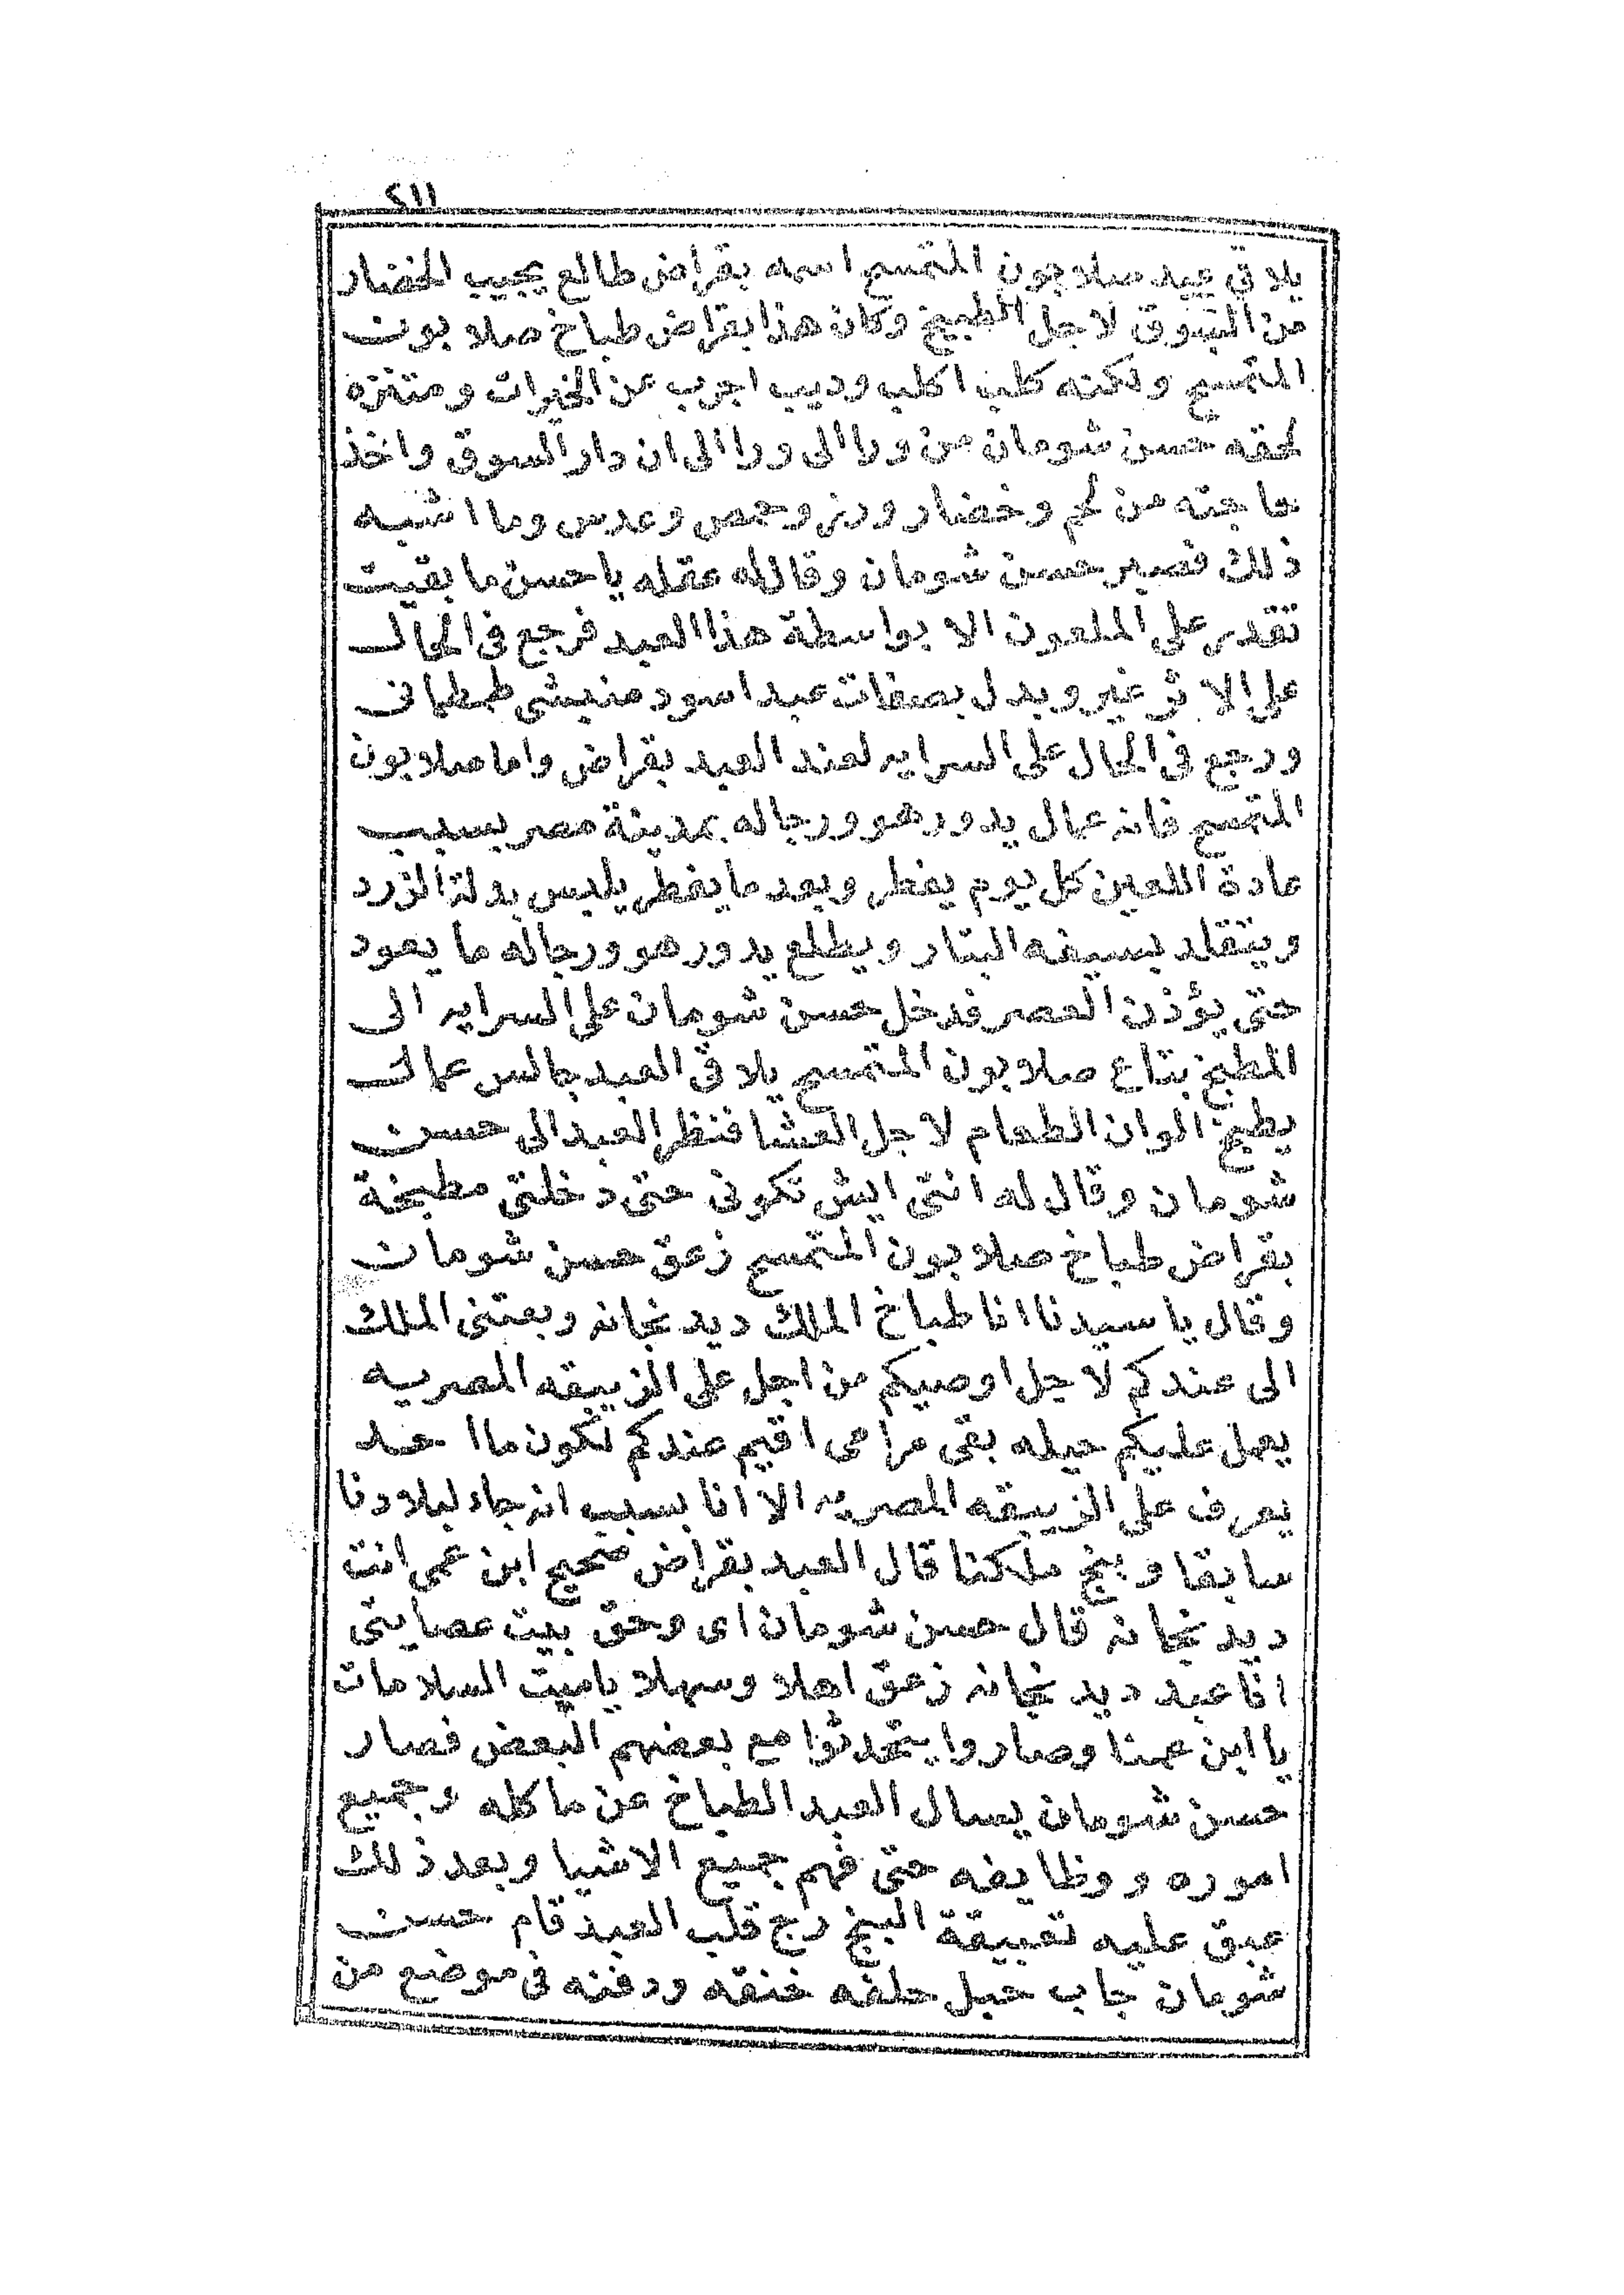 ٢١١
يلاقي عبد صلاجون المتمسح اسمه بقراض طالع يجيب الخضار
من السوق لاجل الطبيخ وكان هذا بقراض طباخ صلابون
المتمسح ولكنه كلب اكلب وديب اجرب عن الخيرات ومتنزه
لحقه حسن شومان من ورا الى ورا الى ان دار السوق واخذ
حاجته من لحم وخضار ورز وحمص وعدس وما اشبه
ذلك فصبر حسن شومان وقال له عقله ياحسن ما بقيت
تقدر على الملعون الا بواسطة هذا العبد فرجع فى الحال
على الاثر غير وبدل بصفات عبد اسود منيشى طمطمانى
ورجع فى الحال على السرايه لعند العبد بقراض واما صلابون
المتمسح فانه عمال يدور هو ورجاله بمدينة مصر بسبب
عادة اللعين كل يوم يفطر وبعد ما يفطر يلبس بدلة الزرد
ويتقلد بسيفه البتار ويطلع يدور هو ورجاله ما يعود
حتى يؤذن العصر فدخل حسن شومان على السرايه الى
المطبخ بتاع صلابون المتمسح يلاقى العبد جالس عمال
يطبخ الوان الطعام لاجل العشا فنظر العبد الى حسن
شومان وقال له انتى ايش تكونى حتى دخلتى مطبخة
بقراض طباخ صلابون المتمسح زعق حسن شومان
وقال يا سيدنا انا طباخ الملك ديد نجانه وبعتنى الملك
الى عندكم لاجل اوصيكم من اجل على الزيبقه المصريه
يعمل عليكم حيله بقى مرامى اقيم عندكم لكون ما احد
يعرف على الزيبقه المصريه الا انا بسبب انه جاء لبلادنا
سابقا وبنج ملكنا قال العبد بقراض صحيح ابن عمى انت
ديد نجانه قال حسن شومان اى وحق بيت عصايتى
انا عبد ديد نجانه زعق اهلا وسهلا ياميت السلامات
يا ابن عمنا وصاروا يتحدثوا مع بعضهم البعض فصار
حسن شومان يسال العبد الطباخ عن ماكله وجميع
اموره ووظايفه حتى فهم جميع الاشيا وبعد ذلك
عبق عليه تعبيقة البنج رج قلب العبد قام حسن
شومان جاب حبل حلفه خنقه ودفنه فى موضع من